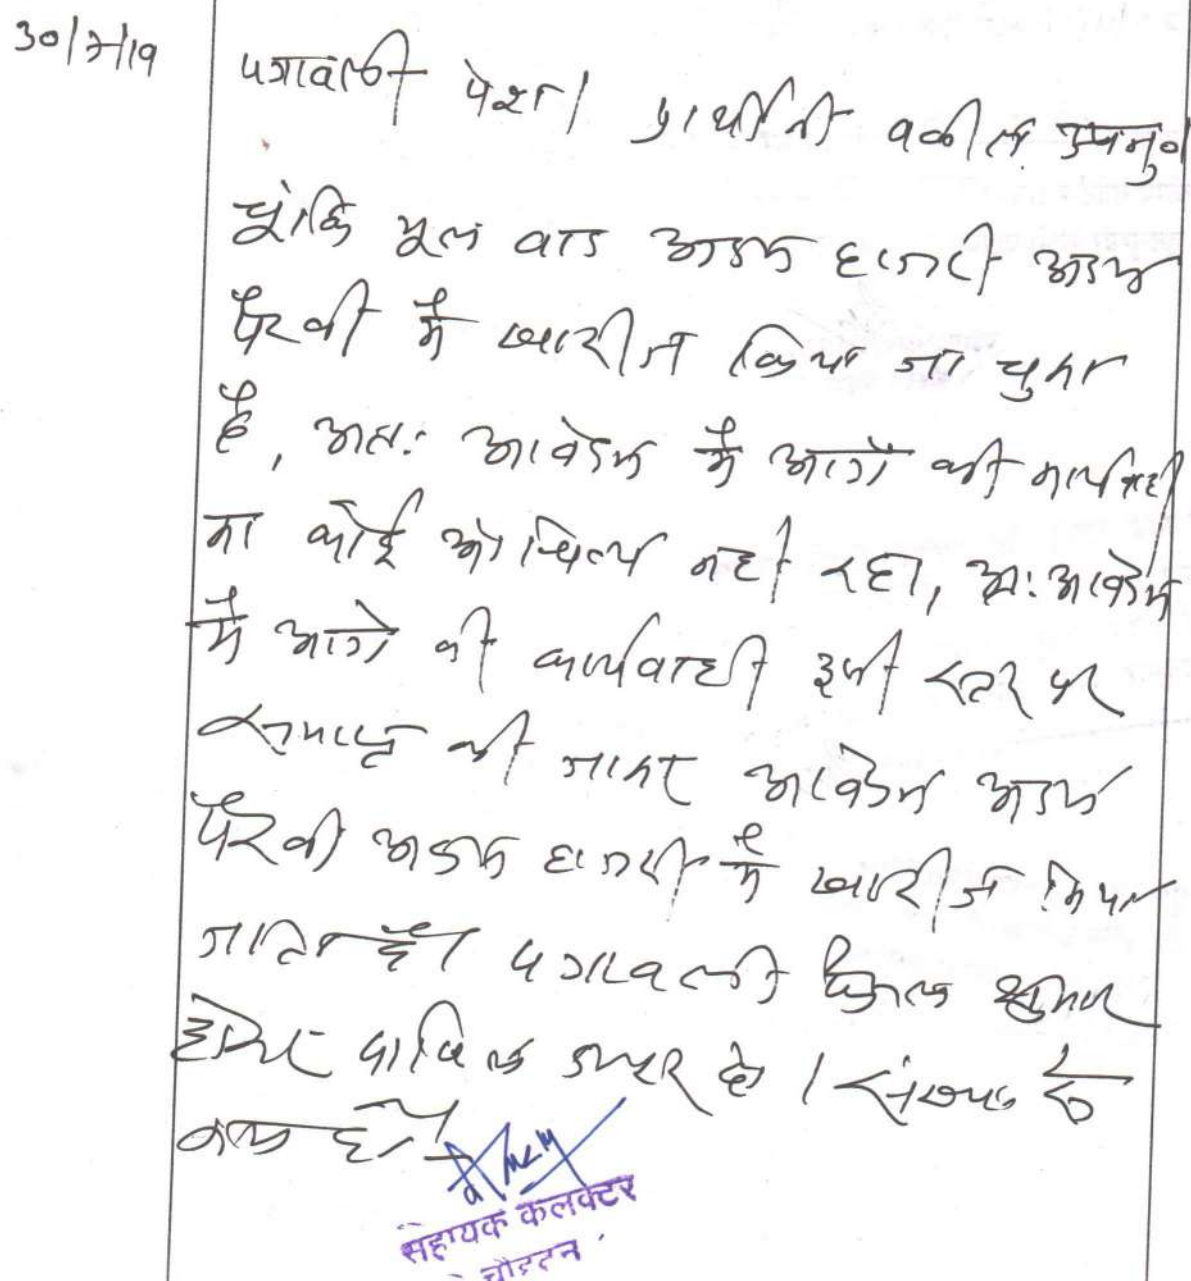 30/7/19
पत्रावली पेश। प्रार्थीनी वकील उपमुव
चूंकि मूल वाद अदम हाजरी अदम
पैरवी में खारीज किया जा चुका
है, अतः आवेदन में आगे की कार्यवाही
का कोई औचित्य नही रहा, अः आवेदन
में आगे की कार्यवाही इसी स्तर पर
समाप्त की जाकर आवेदन अदम
पैरवी अदम हाजरी में खारीज किया
जाता है। पत्रावली फैसल शुमार
होकर दाखिल दफ्तर हो। संलग्न
सहायक कलक्टर
चौहटन